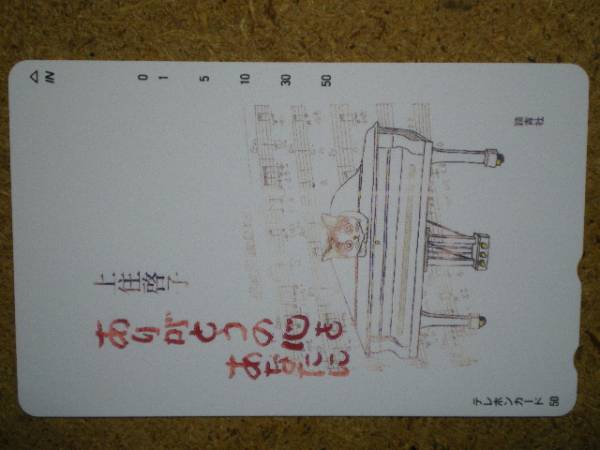 ◁IN
0 1 5 10 30 50
踏青社
上住啓子
ありがとうの心を
あなたに
テレホンカード 50